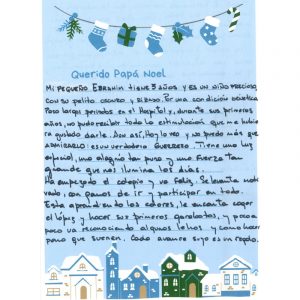 Querido Papá Noel
Mi pequeño Ebrahim tiene 5 años y es un niño precioso,
con su pelito oscuro y denso. Por una condición genética
pasó largos periodos en el Hospital y, durante sus primeros
años, no pudo recibir toda la estimulación que me hubiera
gustado darle. Aún así, hoy lo veo y no puedo más que
admirarlo: es un verdadero guerrero. Tiene una luz
especial, una alegría tan pura y una fuerza tan
grande que nos ilumina los días.
Ha empezado el colegio y va feliz. Se levanta
con ganas de ir y participar en todo.
Está aprendiendo los colores, le encanta coger
el lápiz y hacer sus primeros garabatos, y poco a
poco va reconociendo algunas letras y como hacer
para que suenen. Cada avance suyo es un regalo.